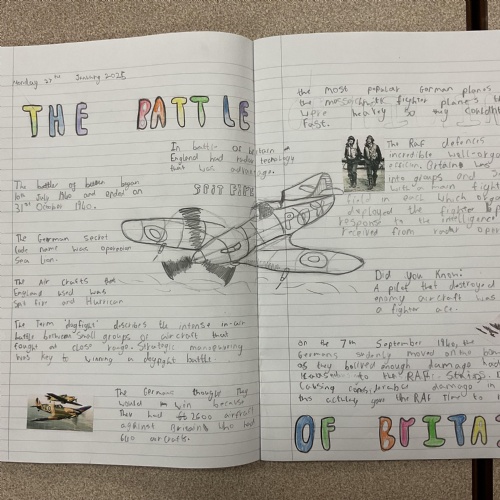 Monday 27th January 2025
THE BATTLE
In battle of britain
England had radar technology
that was advantage.
The battle of britain began
10th July 1940 and ended on
31st October 1940.
SPIT FIRE
The German secret
code name was operation
Sea Lion.
The Air crafts that
England used was
Spit fire and Hurrican
The Term dogfight describes the intense in-air
battle between small groups of aircraft that
fought at close range. Strategic manoeuvering
was key to winning a dogfight battle.
The Germans thought they
would win because
They had 2600 aircraft
against Britain who had
640 aircrafts.
the most popular German planes
the messerchmitt fighter planes
were heavy so they couldn't
fast.
The RAF defences
incredible well-organ
efficien. Britain was
into groups and
with a main fighter
field in each which
deployed the fighter
response to the intelligence
received from radar oper
Did you Know:
A pilot that destroyed
enemy aircraft was
a fighter ace.
on the 7th September 1940, the
Germans sudenly moved on the bom
as they belived enough damage had
caused to the RAF. Stra
Causing considerable damage in
this actuley gave the RAF time to
OF BRITAI